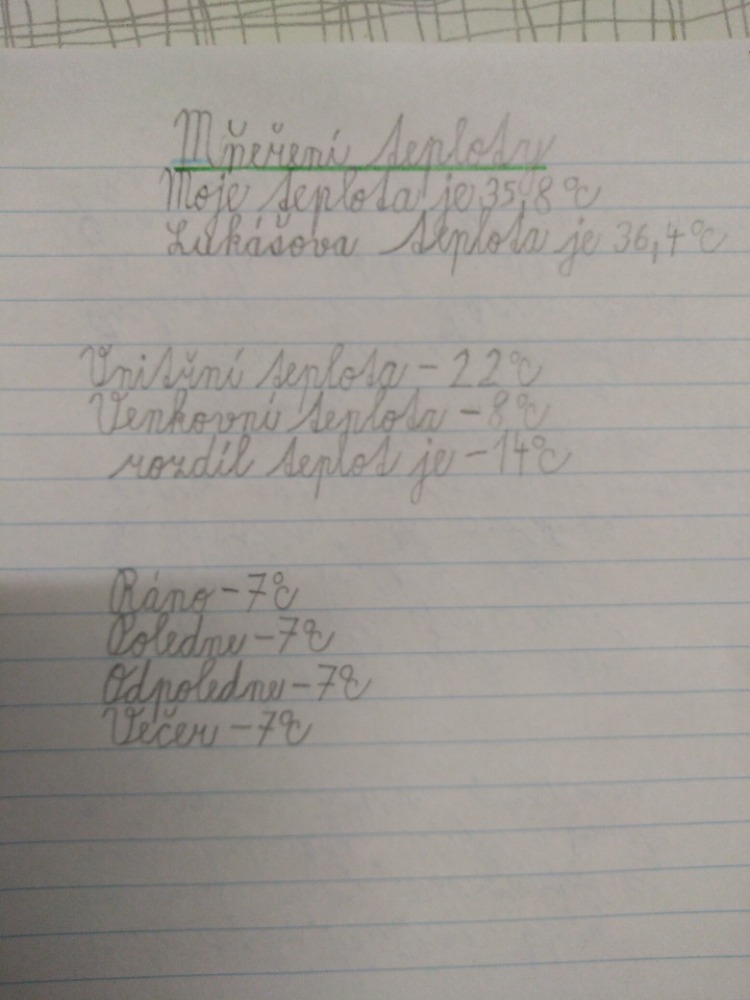 Mňeření teploty
Moje teplota je 35,8 °C
Lukášova teplota je 36,4 °C
Vnitřní teplota - 22 °C
Venkovní teplota - 8 °C
rozdíl teplot je - 14 °C
Ráno - 7 °C
Poledne - 7 °C
Odpoledne - 7 °C
Večer - 7 °C